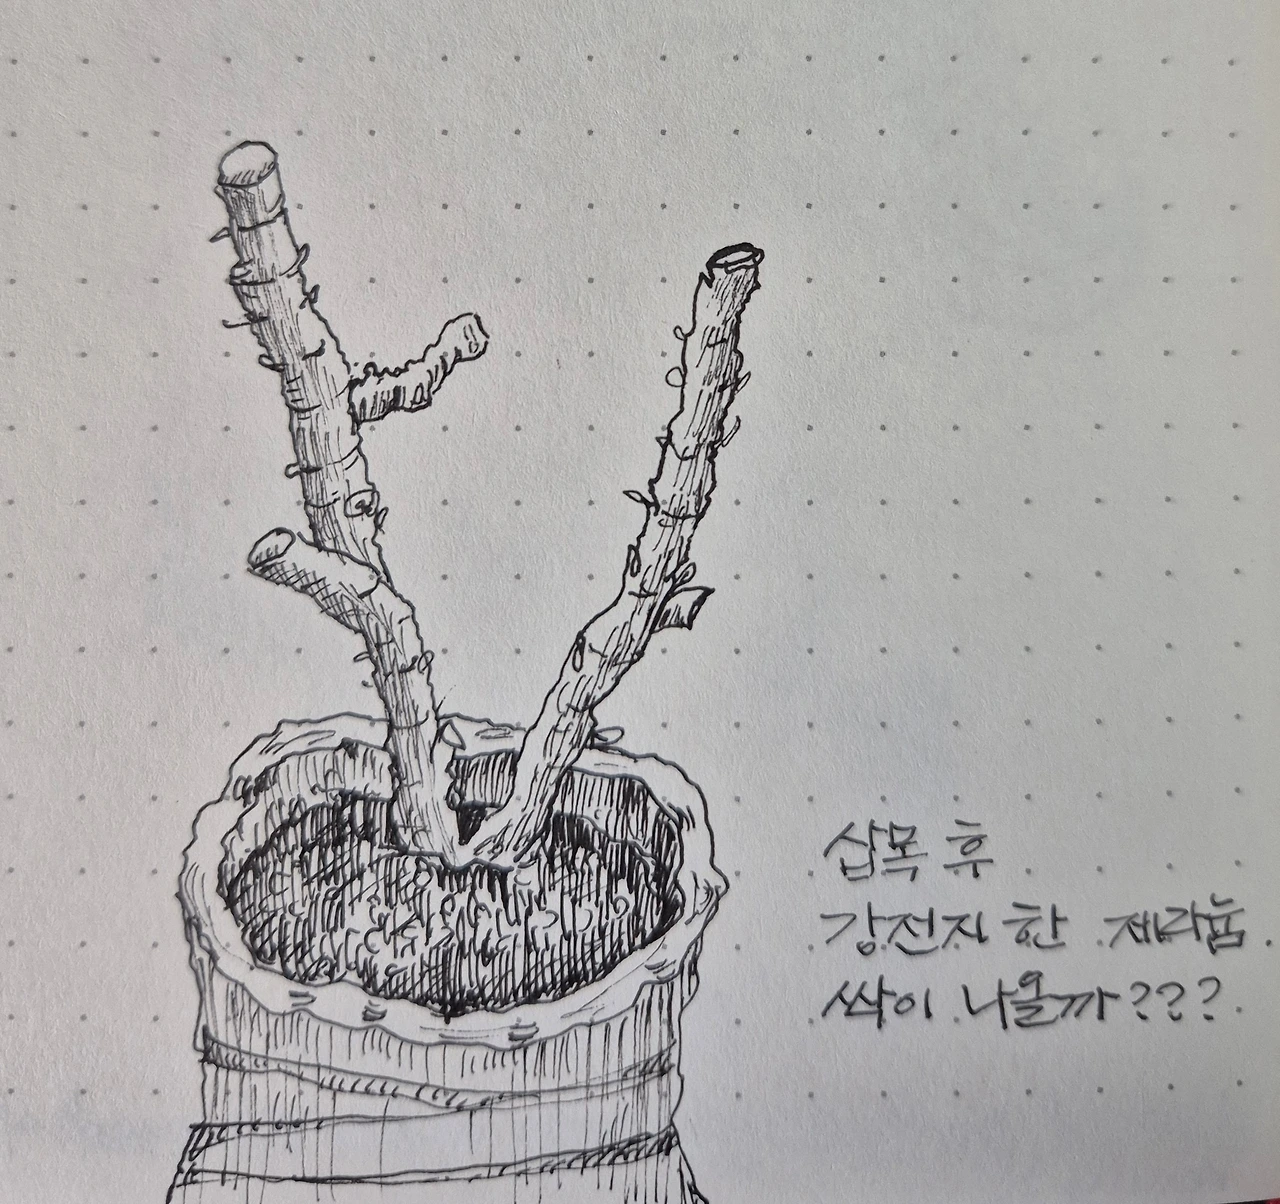 삽목 후
강전지 한 제라늄
싹이 나올까???